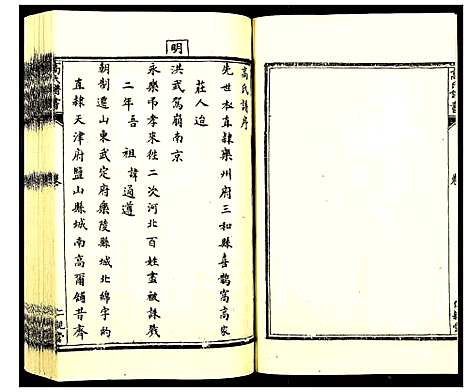 明
高氏譜序
先世本直隸欒州府三和縣喜鵲窩高家
莊人迨
洪武駕崩南京
永樂弔孝來往二次河北百姓盡被誅戮
二年吾 祖諱通遵
朝制遷山東武定府樂陵縣城北綿字約
直隸天津府鹽山縣城南高爾鋪昔齊
高氏譜書
卷